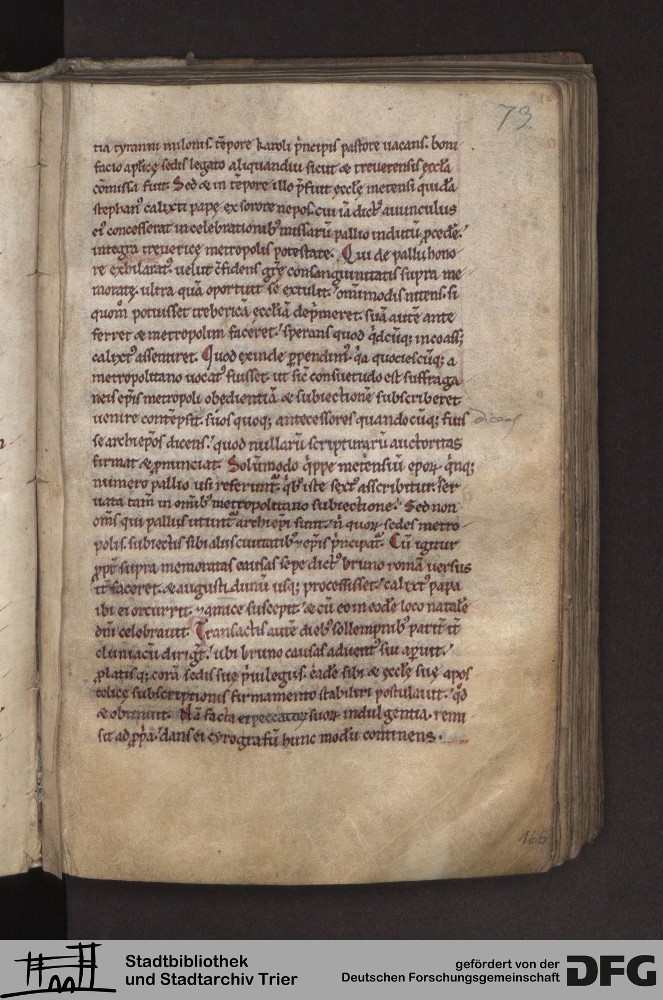 73
tia tyranni milonis. tēpore karoli p̄ncipis pastore uacans. boni
facio aplice sedis legato aliquandiu sicut & treuerensis eccl̄a
cōmissa fuit. Sed & in tēpore illo p̄fuit eccle metensi quidā
stephan᾽ calixti pape ex sorore nepos. cui iā dict᾽ auunculus
ei᾽ concesserat in celebrationib᾽ missarū pallio indutū p̄cede᾽
integra treuerice metropolis potestate. Qui de pallii hono
re exhilarat᾽. uelut c̄fidens
consanguinitatis supra me
morate. ultra quā oportuit se extulit. om̄imodis nitens. si
quom̄ potuisset trebericā eccl̄iā dep̄meret. suā autē ante
ferret & metropolim faceret. sperans quod q̄dcūq; incoass;
calixt᾽ assentiret. Quod exinde ꝑpendim᾽. q̄a quociescūq; a
metropolitano uocat᾽ fuisset. ut sic̄ consuetudo est suffraga
neis ep̄is metropoli obedientiā & subiectionē subscriberet
uenire contēpsit. suos quoq; antecessores quandocūq; fuis
dicens
se archiep̄os dicens. quod nullarū scripturarū auctoritas
firmat & ꝓnunciat. Solūmodo q̄ppe metensiū epoꝝ q̄nq;
numero pallio usi referunt᾽. q̄b᾽ iste sext᾽ asscribitur. ser
uata tam̄ in om̄ib᾽ metropolitano subiectione. Sed non
om̄s qui palliis utunt᾽ archiep̄i sunt. n̄ quoꝝ sedes metro
polis. subiectis sibi aliis ciuitatib᾽ ⁊ ep̄is p̄ncipat᾽. Cū igitur
ꝓpt᾽ supra memoratas causas sepe dict᾽ bruno romā uersus
it᾽ faceret. & augustidunū usq; processisset. calixt᾽ papa
ibi ei occurrit. ⁊ amice suscepit. & cū eo in eodē loco natale
dn̄i celebrauit. Transactis autē dieb᾽ sollempnib᾽ parit᾽ it᾽
cluniacū dirigt᾽. ubi bruno causas aduent᾽ sui aꝑuit.
ꝓlatisq; corā sedis sue p̄uilegiis. eadē sibi & eccle sue apos
tolice subscriptionis firmamento stabiliri postulauit. q̄d
& obtinuit. Nā facta ei peccatoꝝ suoꝝ indulgentia. remi
sit ad ꝓp̄a. dans ei cyrografū hunc modū continens.
166
Stadtbibliothek
und Stadtarchiv Trier
gefördert von der
Deutschen Forschungsgemeinschaft
DFG